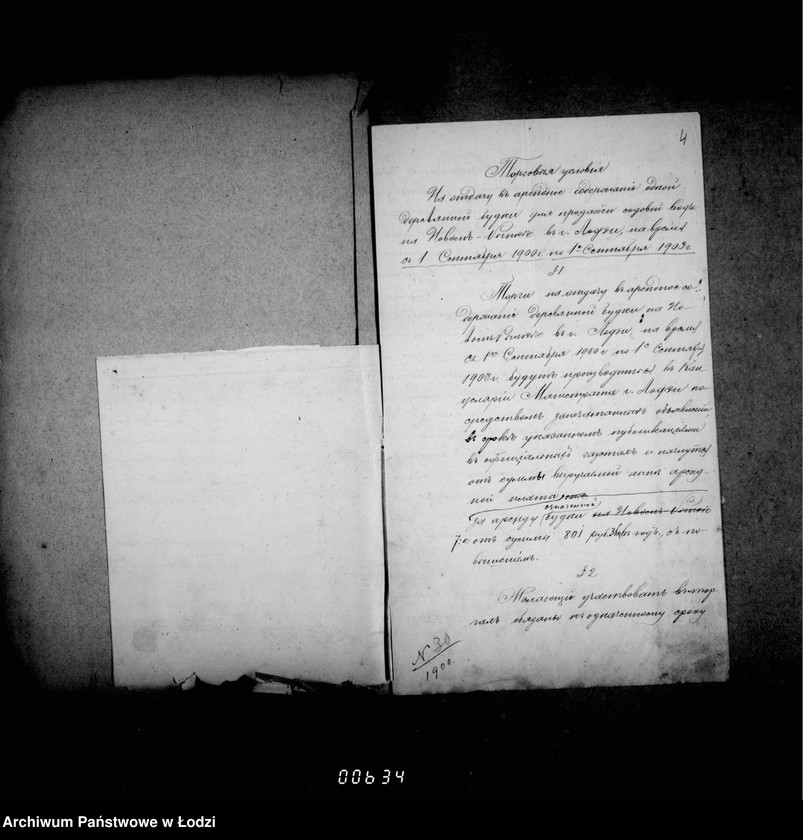 4
Торговыя условія
На отдачу въ арендное содержаніе одной
деревянной будки для продажи содовой воды
на Новомъ-Рынкѣ въ г. Лодзи, на время
съ 1 Сентября 1900 г. по 1е Сентября 1903 г.
§1
Торги на отдачу въ арендное со-
держаніе деревянной будки на Но-
вомъ Рынкѣ въ г. Лодзи, на время
съ 1го Сентября 1900 г по 1е Сентября
1903 г. будутъ производиться въ Кан-
целяріи Магистрата г. Лодзи по-
средствомъ запечатанныхъ объявленій
въ срокъ указанномъ публикаціями
въ офиціальныхъ газетахъ и начнутся
отъ суммы выручаемой нынѣ аренд-
ной платы
означенной
за аренду будки на Новомъ
т. е. отъ суммы 801 руб. въ годъ, съ по-
вышеніемъ.
§2
Желающіе участвовать въ тор-
гахъ обязаны къ означенному сроку
N 30
1900.
00634
Archiwum Państwowe w Łodzi